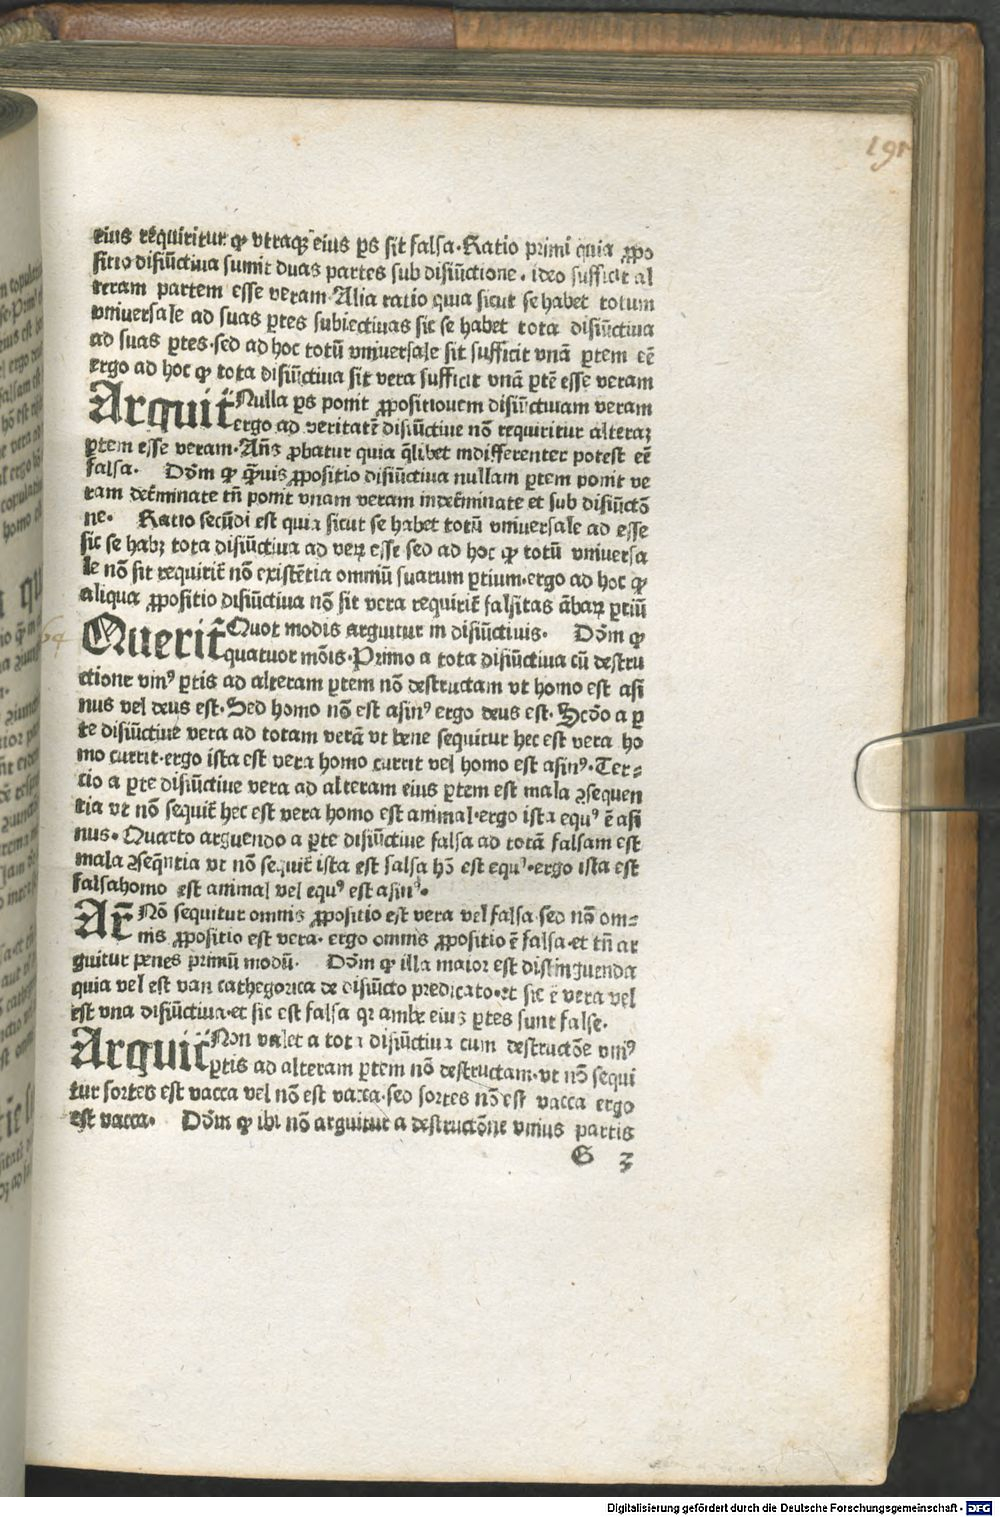 191
eius requiritur ꝙ vtraqꝫ eius ps sit falsa. Ratio primi quia ꝓpo
sitio disiūctiua sumit duas partes sub disiūctione. ideo sufficit al
teram partem esse veram. Alia ratio quia sicut se habet totum
vniuersale ad suas ꝑtes subiectiuas sic se habet tota disiūctiua
ad suas ꝑtes. sed ad hoc totū vniuersale sit sufficit vnā ꝑtem eē
ergo ad hoc ꝙ tota disiūctiua sit vera sufficit vnā ꝑtē esse veram
Arguit̄ Nulla ps ponit ꝓpositionem disiūctiuam veram
ergo ad veritatē disiūctiue nō requiritur alteraꝫ
ꝑtem esse veram. Añs ꝓbatur quia q̄libet indifferenter potest eē
falsa. Dōm ꝙ q̄uis ꝓpositio disiūctiua nullam ꝑtem ponit ve
ram det̄minate tñ ponit vnam veram indet̄minate et sub disiūctō
ne. Ratio secūdi est quia sicut se habet totū vniuersale ad esse
sic se habꝫ tota disiūctiua ad veꝝ esse sed ad hoc ꝙ totū vniuersa
le nō sit requirit̄ nō existētia omniū suarum ꝑtium. ergo ad hoc ꝙ
aliqua ꝓpositio disiūctiua nō sit vera requirit̄ falsitas ābaꝝ ꝑtiū
64
Querit̄ Quot modis arguitur in disiūctiuis. Dōm ꝙ
quatuor mōis. Primo a tota disiūctiua cū destru
ctione vniꝰ ꝑtis ad alteram ꝑtem nō destructam vt homo est asi
nus vel deus est. Sed homo nō est asinꝰ ergo deus est. Scdo a ꝑ
te disiūctiue vera ad totam verā vt bene sequitur hec est vera ho
mo currit. ergo ista est vera homo currit vel homo est asinꝰ. Ter⸗
cio a ꝑte disiūctiue vera ad alteram eius ꝑtem est mala ꝯsequen
tia vt nō sequit̄ hec est vera homo est animal. ergo ista equꝰ ē asi
nus. Quarto arguendo a ꝑte disiūctiue falsa ad totā falsam est
mala ꝯseq̄ntia vt nō sequit̄ ista est falsa hō est equꝰ. ergo ista est
falsa homo est animal vel equꝰ est asinꝰ.
Ar̄ Nō sequitur omnis ꝓpositio est vera vel falsa sed nō om⸗
nis ꝓpositio est vera. ergo omnis ꝓpositio ē falsa. et tñ ar
guitur penes primū modū. Dōm ꝙ illa maior est distinguenda
quia vel est vna cathegorica de disiūcto predicato. et sic ē vera vel
est vna disiūctiua. et sic est falsa qꝛ ambe eius ꝑtes sunt false.
Arguit̄ Non valet a tota disiūctiua cum destructōe vniꝰ
ꝑtis ad alteram ꝑtem nō destructam. vt nō sequi
tur sortes est vacca vel nō est vacca. sed sortes nō est vacca ergo
est vacca. Dōm ꝙ ibi nō arguitur a destructōne vnius partis
G 3
Digitalisierung gefördert durch die Deutsche Forschungsgemeinschaft - DFG